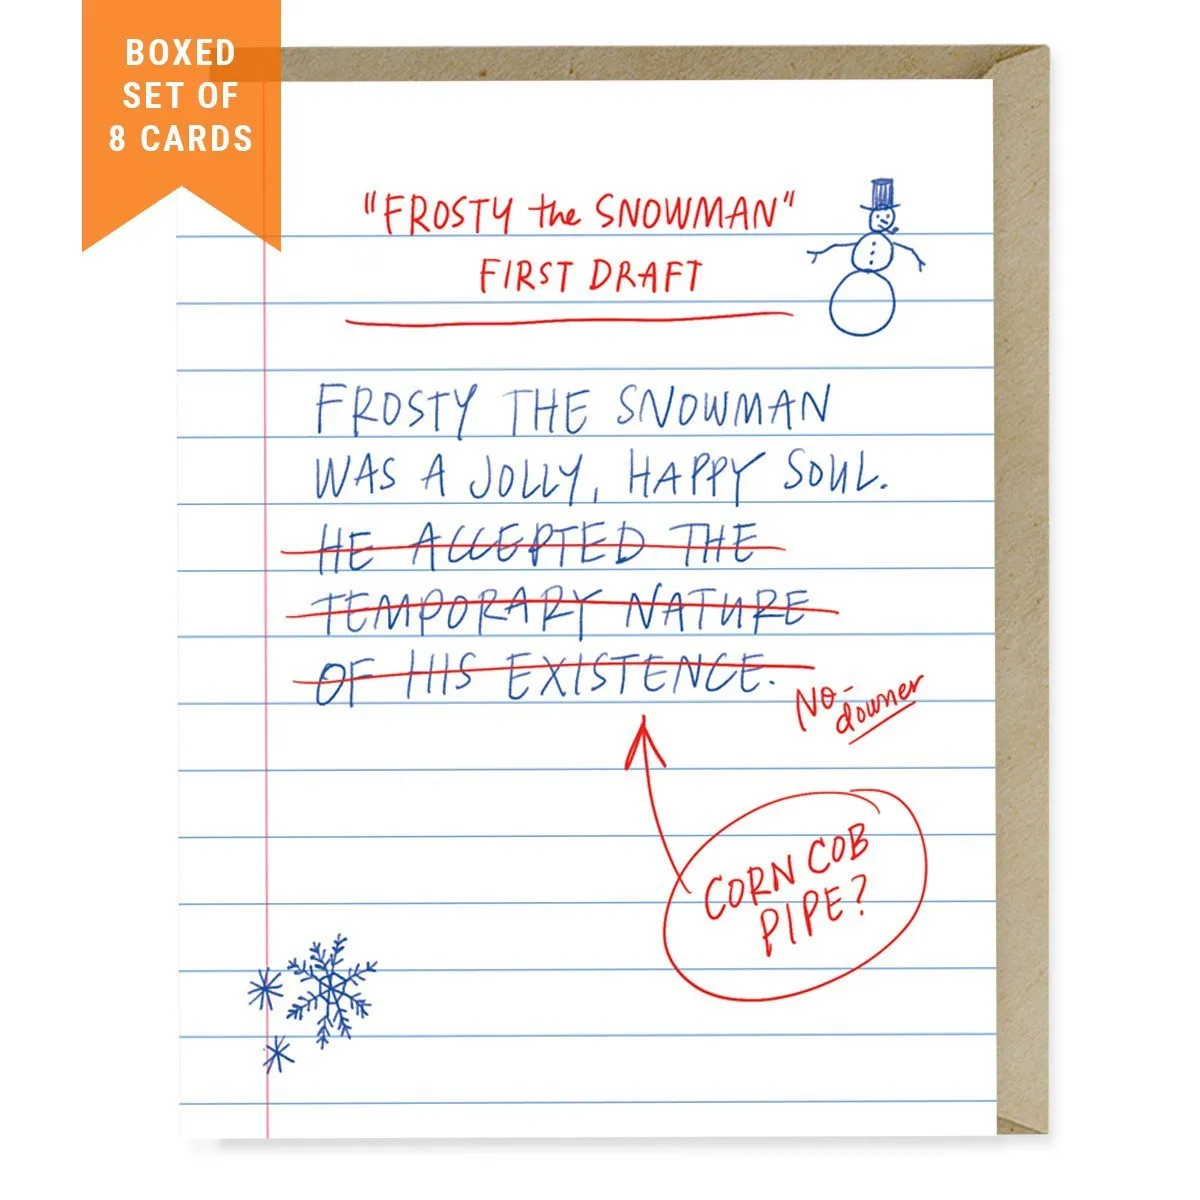 BOXED
SET OF
8 CARDS
"FROSTY the SNOWMAN"
FIRST DRAFT
FROSTY THE SNOWMAN
WAS A JOLLY, HAPPY SOUL.
HE ACCEPTED THE
TEMPORARY NATURE
OF HIS EXISTENCE.
NO-
downer
CORN COB
PIPE?